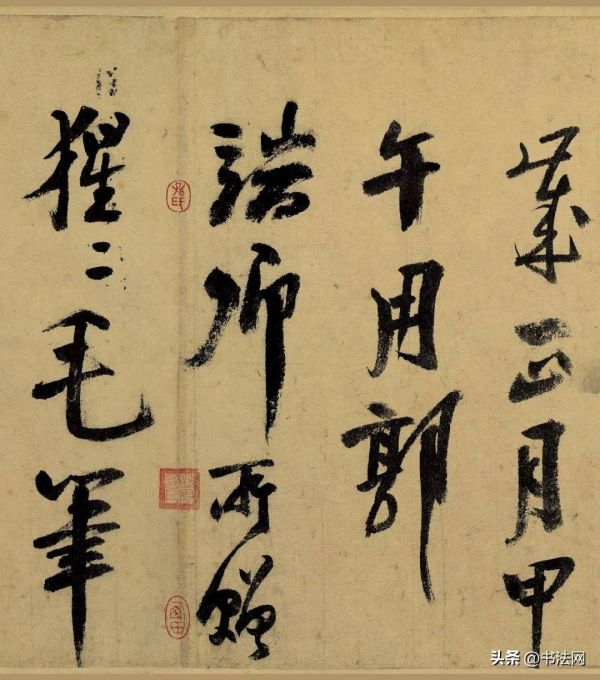 歲正月甲
午用郭
端卿所贈
猩〻毛筆
头条 @书法网